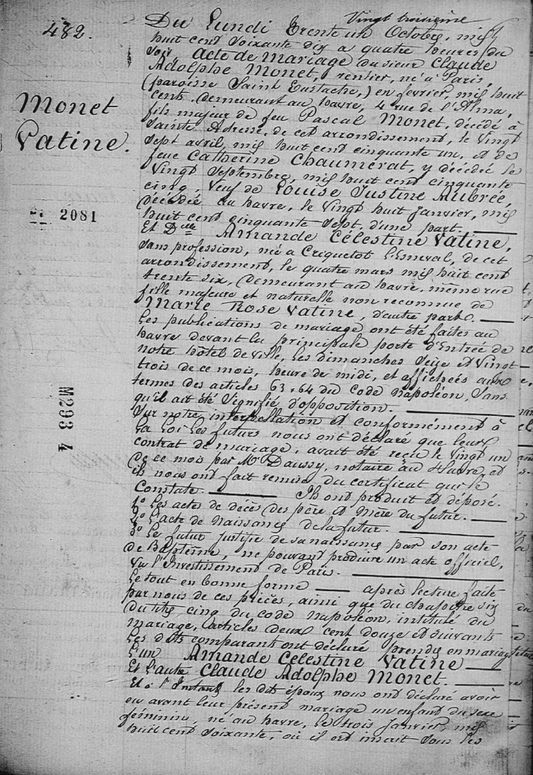 482.
Monet
Vatine.
2081
M293 4
Vingt troisième
Du Lundi trente un Octobre, mil
huit cent soixante dix a quatre heures du
soir Acte de Mariage du sieur Claude
Adolphe Monet, rentier, né à Paris
(paroisse Saint Eustache,) en février, mil huit
cent. demeurant au havre, 4 rue de l'Alma,
fils majeur de feu Pascal Monet, décédé à
Sainte Adresse, de cet arrondissement, le Vingt
sept avril, mil huit cent cinquante un, et de
feue Catherine Chaumerat, y décédée le
Vingt Septembre, mil huit cent cinquante
cinq, Veuf de Louise Justine Aubrée,
décédée au havre, le Vingt huit janvier, mil
huit cent cinquante sept, d'une part.
Et Dlle Amande Célestine Vatine,
sans profession, née a Criquetot Lesneval, de cet
arrondissement, le quatre mars mil huit cent
trente six, demeurant au havre, même rue
fille majeure et naturelle non reconnue de
Marie Rose Vatine, d'autre part.
Les publications de mariage ont été faites au
havre devant la principale porte d'Entrée de
notre hôtel de ville, les dimanches Seize et Vingt
trois de ce mois, heure de midi, et affichées aux
termes des articles 63 + 64 du Code Napoléon, Sans
qu'il ait été signifié d'opposition.
Sur notre interpellation et conformément à
la loi les futurs nous ont déclaré que leur
contrat de mariage, avait été reçu le vingt un
de ce mois par Me Daussy, notaire au Havre, et
ils nous ont fait remise du certificat qui le
Constate. Ils ont produit et déposé.
1º Les actes de décès des père et Mère du futur.
2º L'acte de Naissance de la future.
3º Le futur justifie de sa naissance par son acte
de Baptême, ne pouvant produire un acte officiel,
Vu l'Investissement de Paris.
Le tout en bonne forme après lecture faite
par nous de ces pièces, ainsi que du chapitre six
du titre cinq du code Napoléon, intitulé du
mariage, articles deux cent douze et suivants
Les dits comparant ont déclaré prendre en mariage
L'un Amande Célestine Vatine
Et l'autre Claude Adolphe Monet.
Et à l'Instant les dits époux nous ont déclaré avoir
eu avant leur présent mariage un enfant du sexe
féminin, né au havre, le trois janvier, mil
huit cent soixante, où il est inscrit sous les